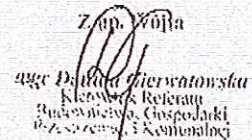 Z up. Wójta
mgr Danuta Gierwatowska
Kierownik Referatu
Budownictwa, Gospodarki
i Komunalnej